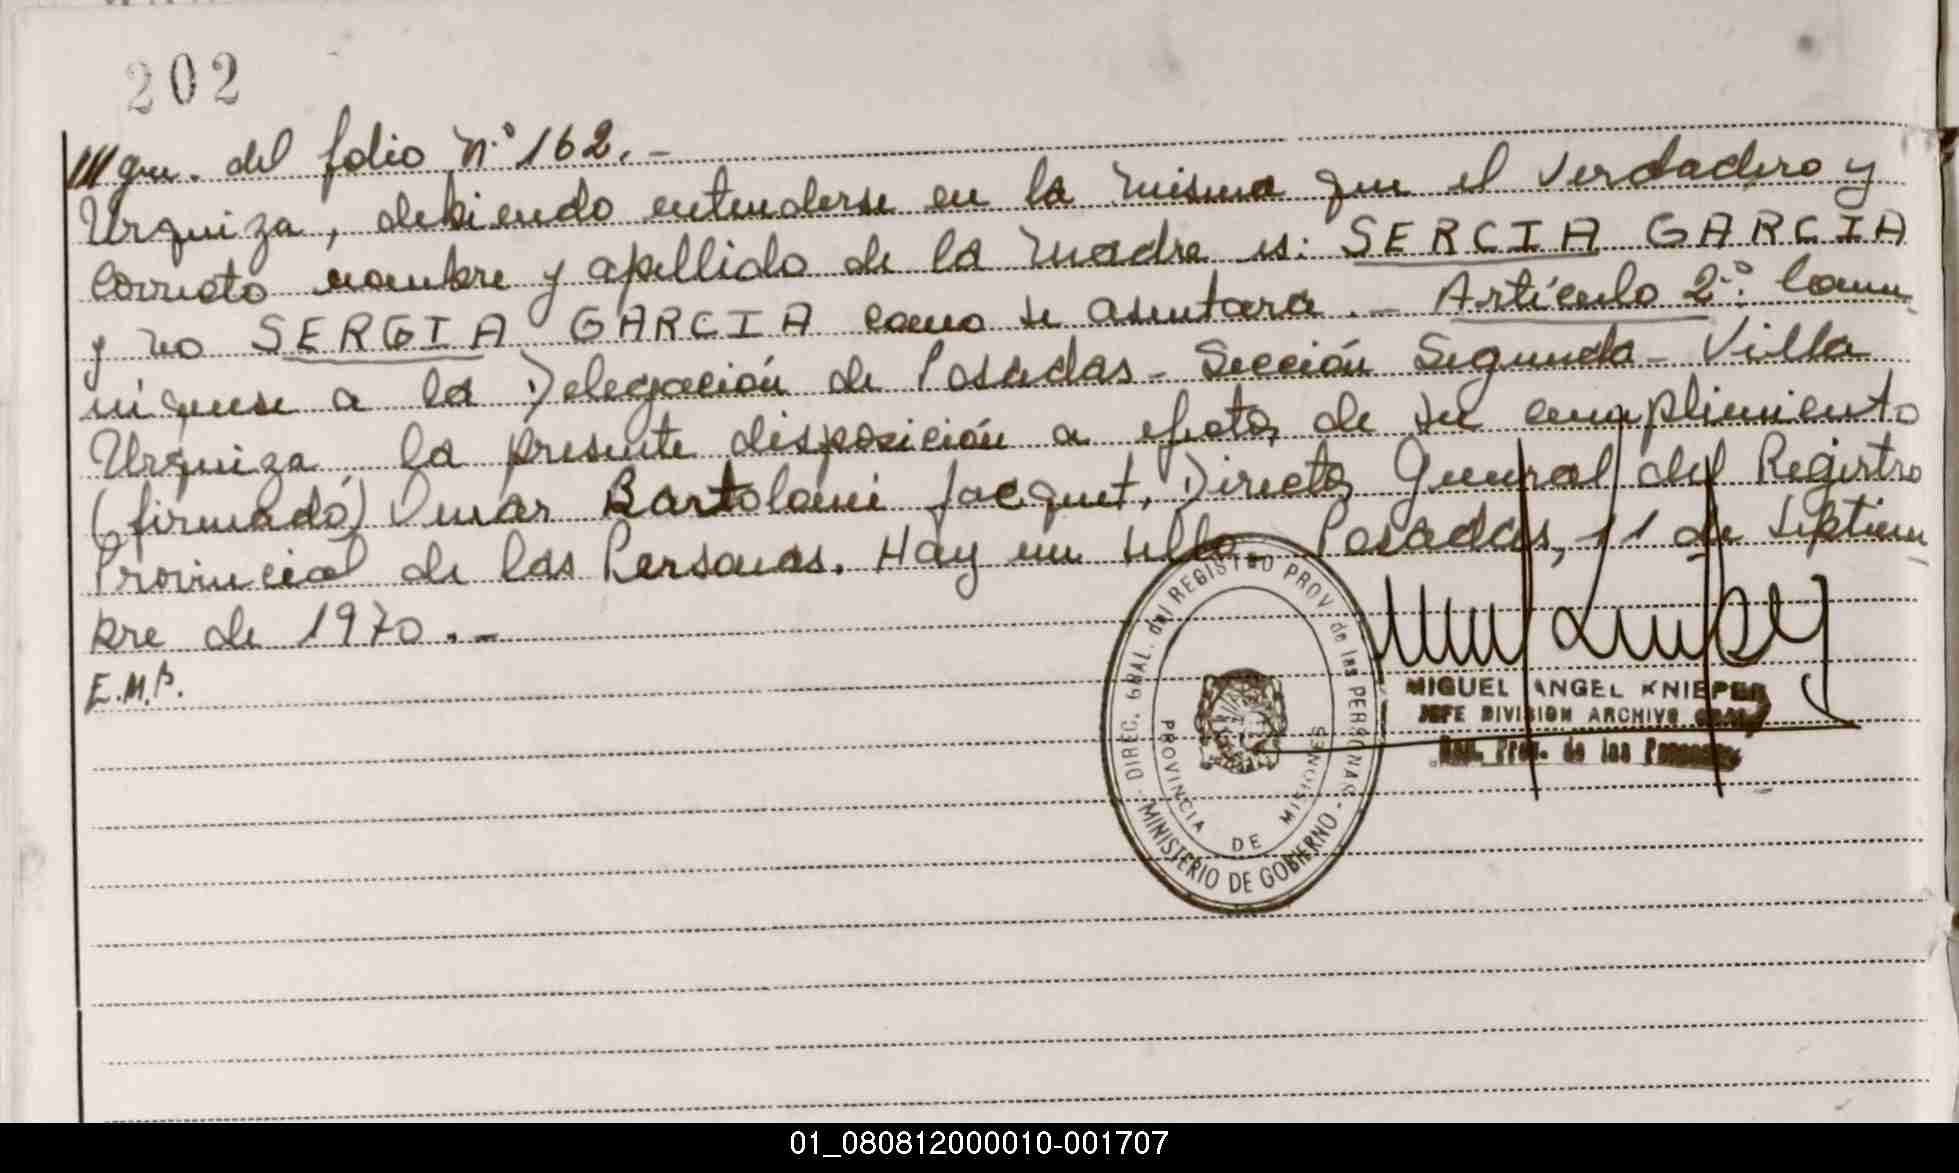 202
///que. del folio Nº 162.-
Urquiza, debiendo entenderse en la misma que el verdadero y
correcto nombre y apellido de la madre es: SERCIA GARCIA
y no SERGIA GARCIA como se asentara.- Artículo 2º: Comu-
níquese a la Delegación de Posadas - Sección Segunda - Villa
Urquiza la presente disposición a efectos de su cumplimiento
(firmado) Omar Bartolomé Jacquet. Director General del Registro
Provincial de las Personas. Hay un sello. Posadas, 11 de septiem-
bre de 1970.-
E.M.B.
DIREC. GRAL. del REGISTRO PROV. de las PERSONAS
- MINISTERIO DE GOBIERNO -
PROVINCIA DE MISIONES
MIGUEL ANGEL KNIEPER
JEFE DIVISION ARCHIVO GRAL.
Prov. de las Personas
01_080812000010-001707